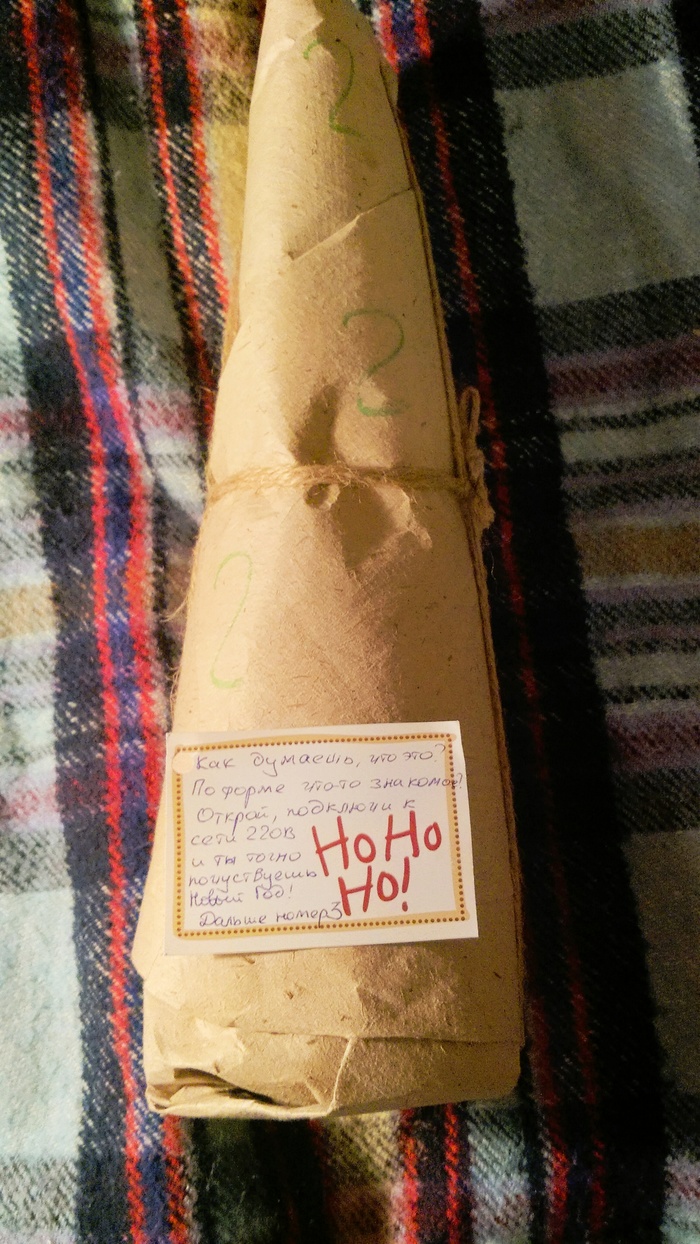 2
2
2
Как думаешь, что это?
По форме что-то знакомое?
Открой, подключи к
сети 220В
и ты точно
почувствуешь
Новый Год!
Дальше номер 3
Ho Ho
Ho!